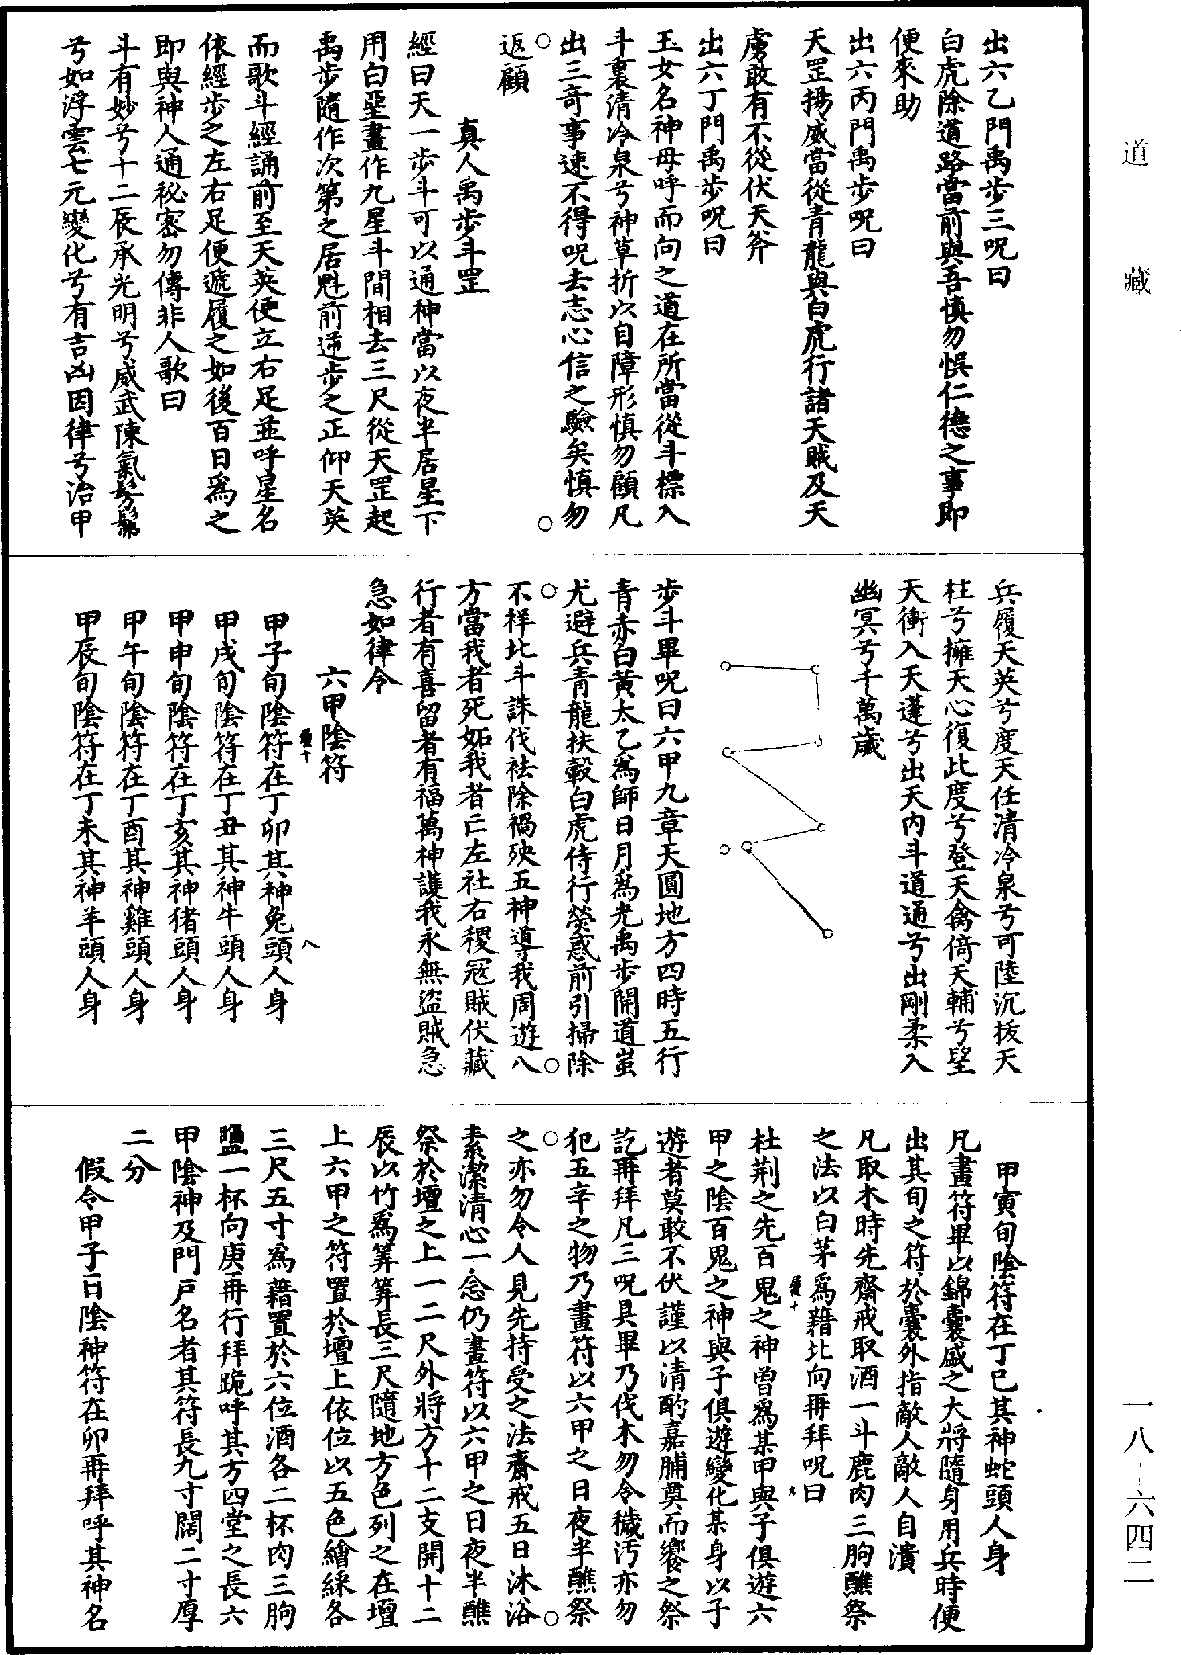 道藏
一八-六四二
出六乙門禹步三呪曰
白虎除道路當前與吾慎勿悞仁德之事即
便來助
出六丙門禹步呪曰
天罡揚威當從青龍與白虎行諸天賊及天
虜敢有不從伏天斧
出六丁門禹步呪曰
玉女名神母呼而向之道在所當從斗標入
斗裏清冷泉兮神草折以自障形慎勿顧凡
出三奇事速不得呪去志心信之驗矣慎勿
返顧
真人禹步斗罡
經曰天一步斗可以通神當以夜半居星下
用白堊畫作九星斗間相去三尺從天罡起
禹步隨作次第之居魁前逆步之正仰天英
而歌斗經誦前至天英便立右足並呼星名
依經步之左右足便遞履之如後百日為之
即與神人通秘密勿傳非人歌曰
斗有妙兮十二辰承光明兮威武陳氣髣髴
兮如浮雲七元變化兮有吉凶因律兮治甲
兵履天英兮度天任清冷泉兮可陸沉拔天
柱兮擁天心復此度兮登天禽倚天輔兮望
天衝入天蓬兮出天內斗道通兮出剛柔入
幽冥兮千萬歲
步斗畢呪曰六甲九章天圓地方四時五行
青赤白黃太乙為師日月為光禹步開道蚩
尤避兵青龍扶轂白虎侍行熒惑前引掃除
不祥北斗誅伐祛除禍殃五神導我周遊八
方當我者死妬我者亡左社右稷寇賊伏藏
行者有喜留者有福萬神護我永無盜賊急
急如律令
六甲陰符
甲子旬陰符在丁卯其神兔頭人身
八
甲戌旬陰符在丁丑其神牛頭人身
甲申旬陰符在丁亥其神猪頭人身
甲午旬陰符在丁酉其神雞頭人身
甲辰旬陰符在丁未其神羊頭人身
甲寅旬陰符在丁巳其神蛇頭人身
凡畫符畢以錦囊盛之大將隨身用兵時便
出其旬之符於囊外指敵人敵人自潰
凡取木時先齋戒取酒一斗鹿肉三朐醮祭
之法以白茅為藉北向再拜呪曰
九
杜荆之先百鬼之神曾為某甲與子俱遊六
甲之陰百鬼之神與子俱遊變化某身以子
遊者莫敢不伏謹以清酌嘉脯奠而饗之祭
訖再拜凡三呪具畢乃伐木勿令穢汚亦勿
犯五辛之物乃畫符以六甲之日夜半醮祭
之亦勿令人見先持受之法齋戒五日沐浴
素潔清心一念仍畫符以六甲之日夜半醮
祭於壇之上一二尺外將方十二支開十二
辰以竹為筭筭長三尺隨地方色列之在壇
上六甲之符置於壇上依位以五色繪綵各
三尺五寸為藉置於六位酒各二杯肉三朐
鹽一杯向庚再行拜跪呼其方四堂之長六
甲陰神及門戶名者其符長九寸闊二寸厚
二分
假令甲子日陰神符在卯再拜呼其神名